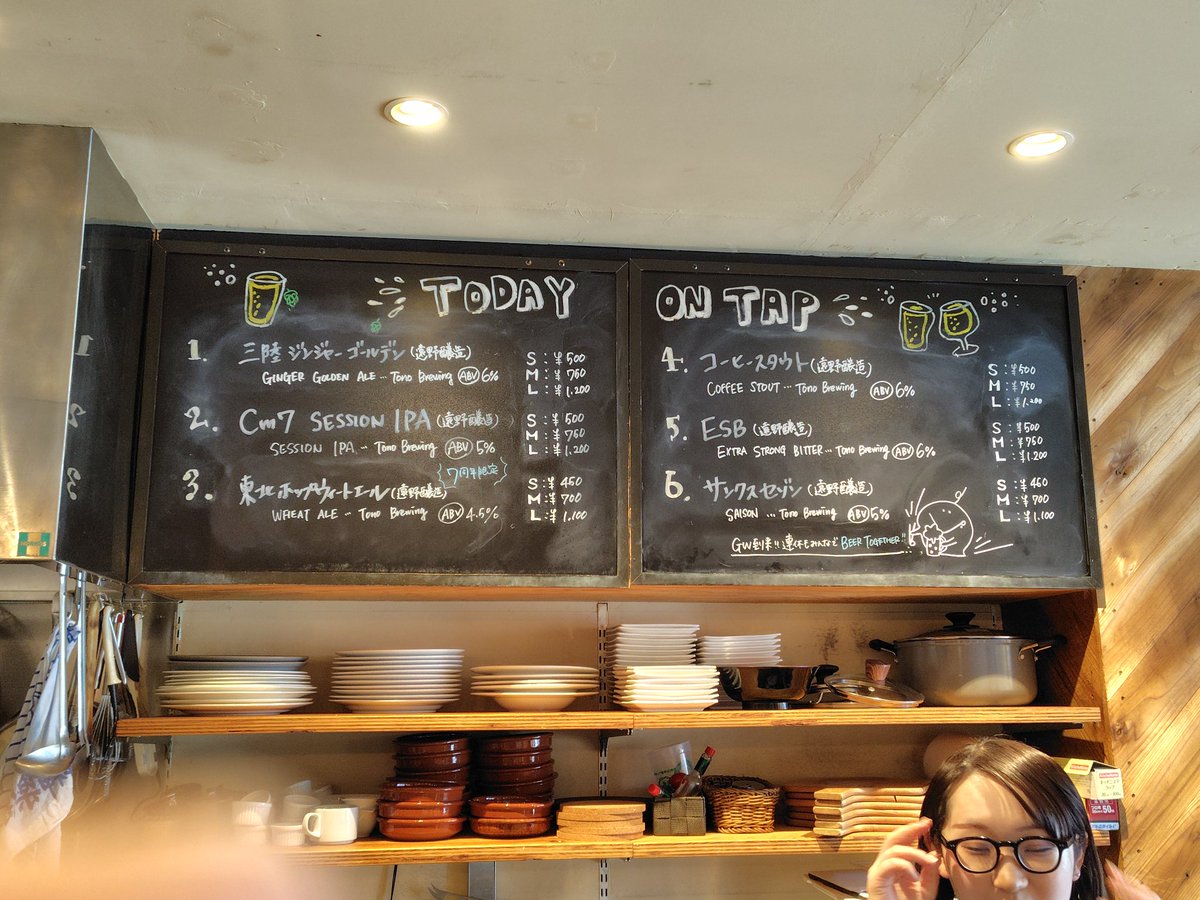 TODAY
1. 三陸ジンジャーゴールデン(遠野醸造)
GINGER GOLDEN ALE... TONO BREWING ABV 6%
S:¥500
M:¥750
L:¥1.200
2. Cm7 SESSION IPA(遠野醸造)
SESSION IPA... TONO BREWING ABV 5%
7周年限定
S:¥500
M:¥750
L:¥1.200
3. 東北ホップウィートエール(遠野醸造)
WHEAT ALE... TONO BREWING ABV 4.5%
S:¥450
M:¥700
L:¥1.100
ON TAP
4. コーヒースタウト(遠野醸造)
COFFEE STOUT... TONO BREWING ABV 6%
S:¥500
M:¥750
L:¥1.200
5. ESB(遠野醸造)
EXTRA STRONG BITTER... TONO BREWING ABV 6%
S:¥500
M:¥750
L:¥1.200
6. サンクスセゾン(遠野醸造)
SAISON... TONO BREWING ABV 5%
S:¥450
M:¥700
L:¥1.100
GW到来!!連休もみんなで BEER TOGETHER!!